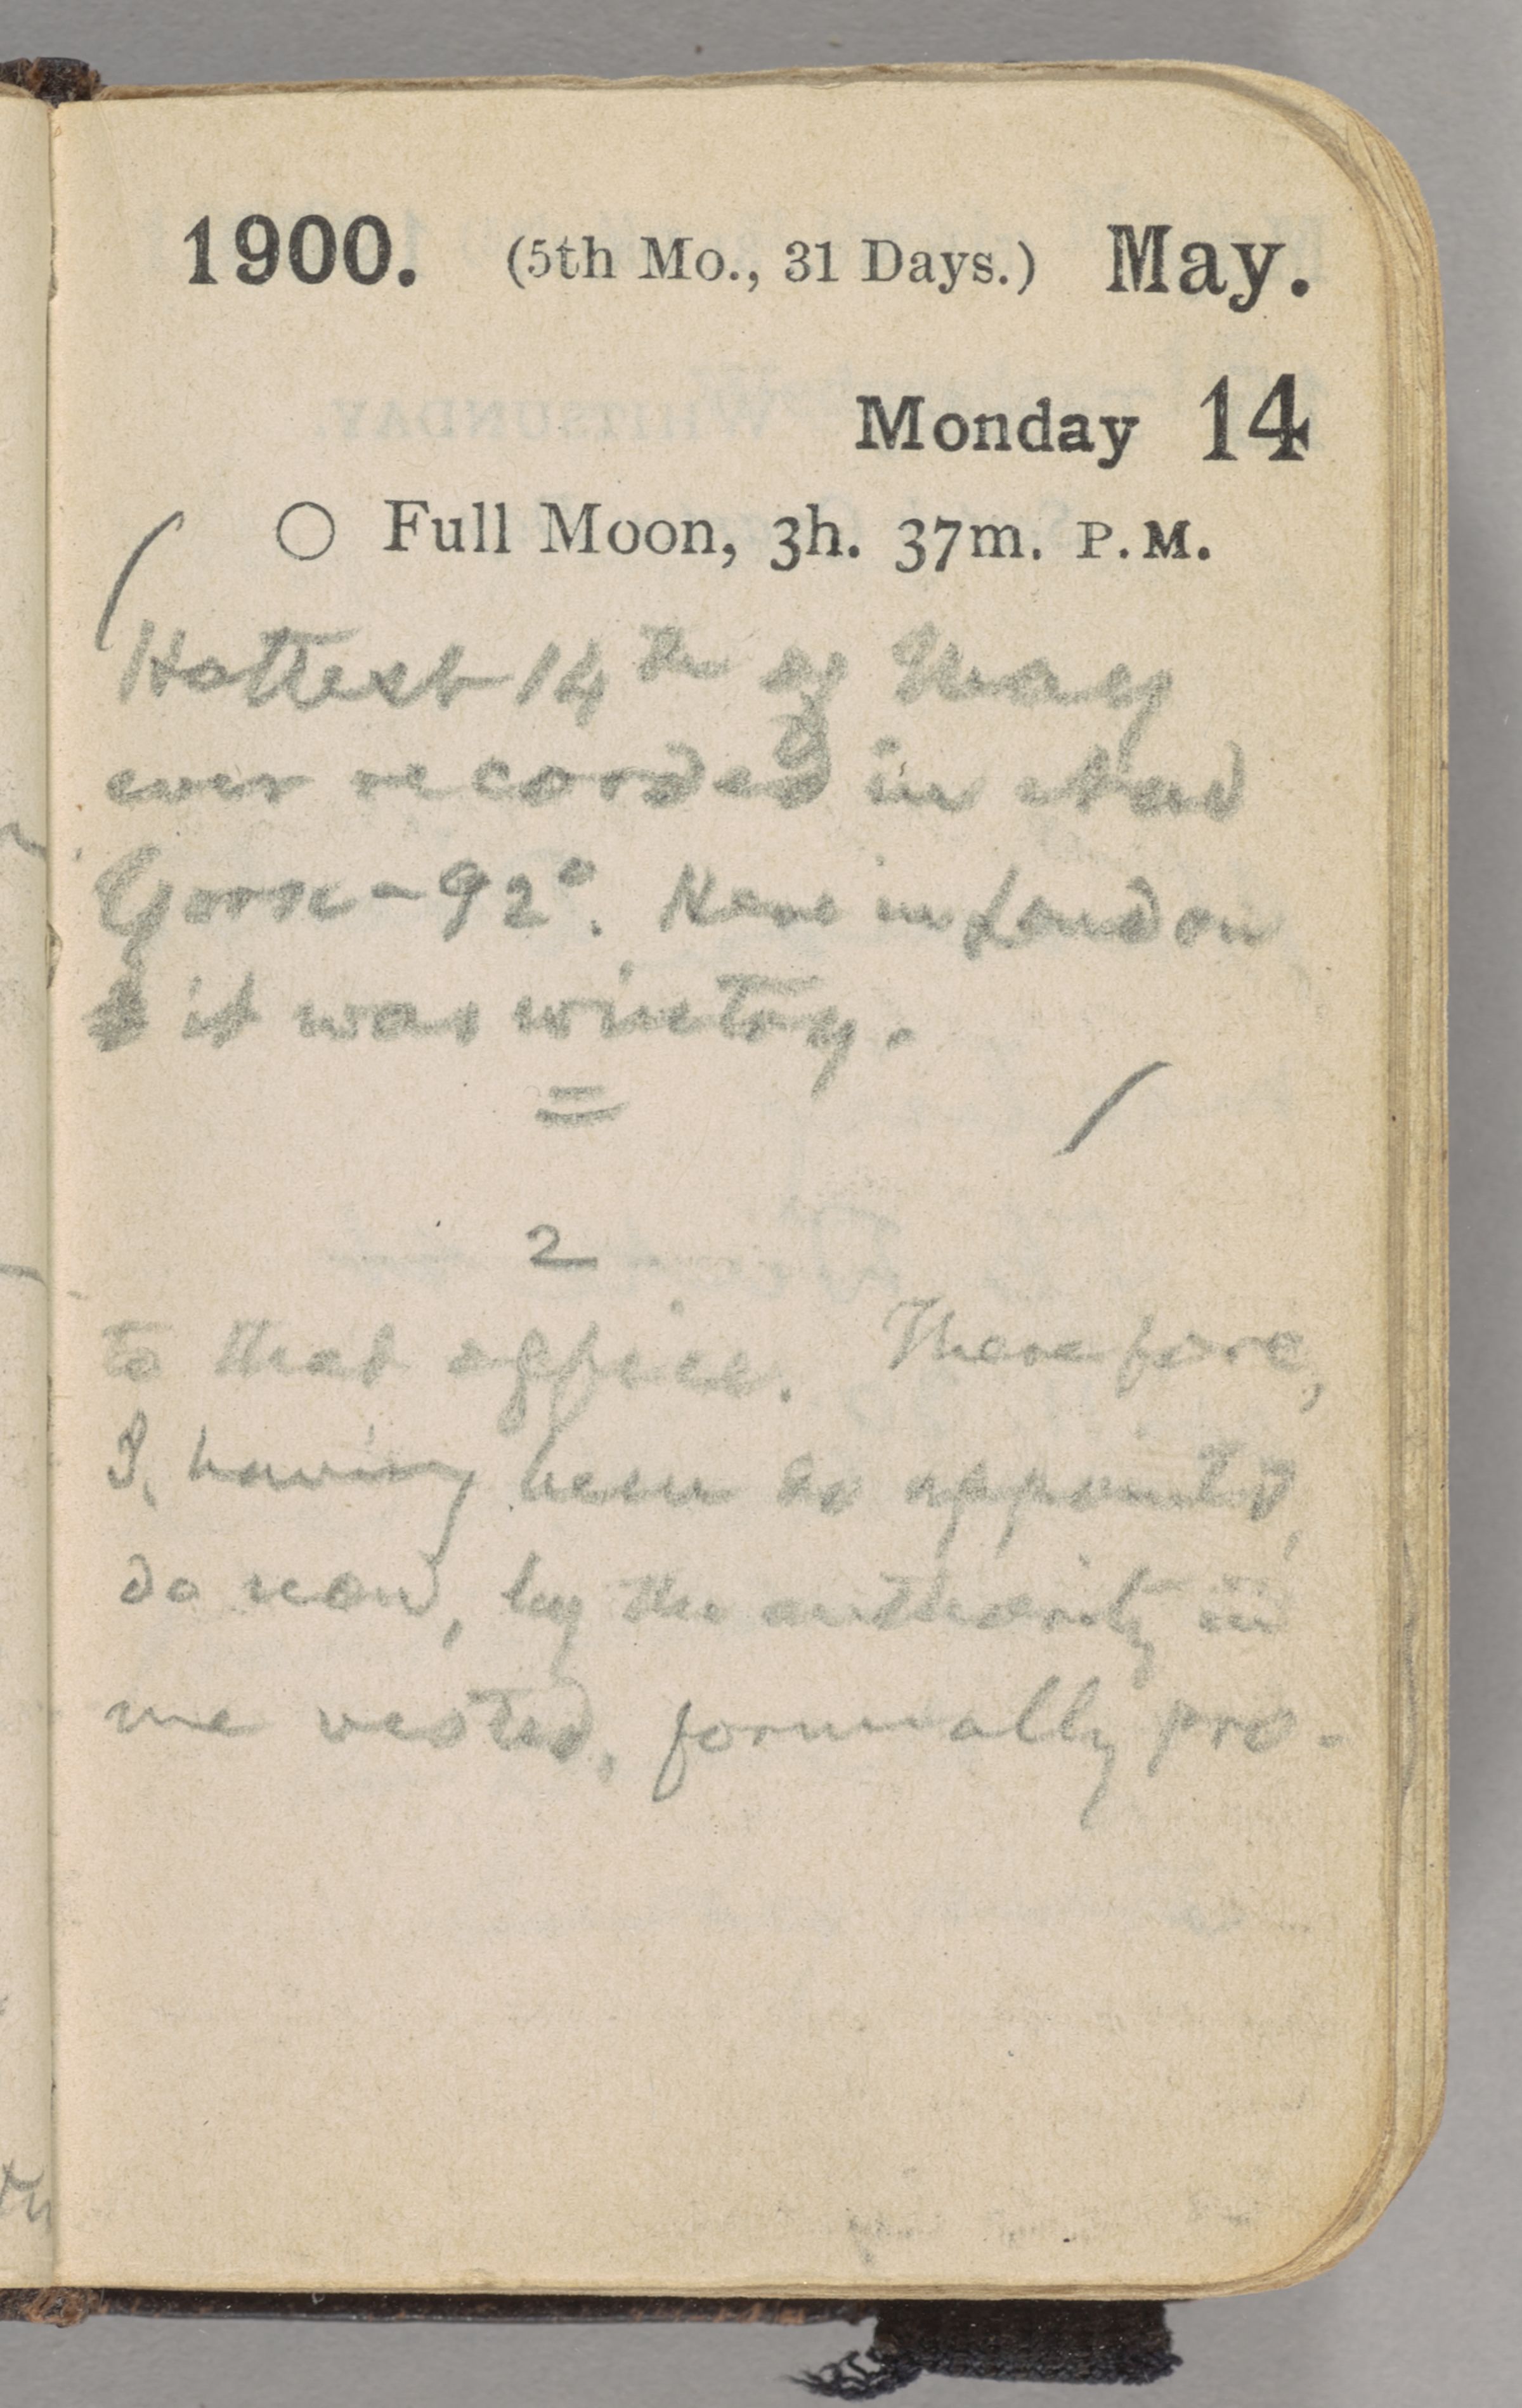 1900. (5th Mo., 31 Days.) May.
Monday 14
○ Full Moon, 3h. 37m. P.M.
Hottest 14th of May
ever recorded in
York - 92°. Here in London
it was wintry.
=
2
to that office. Therefore,
I, having been so appointed,
do now, by the authority in
me vested, formally pro-